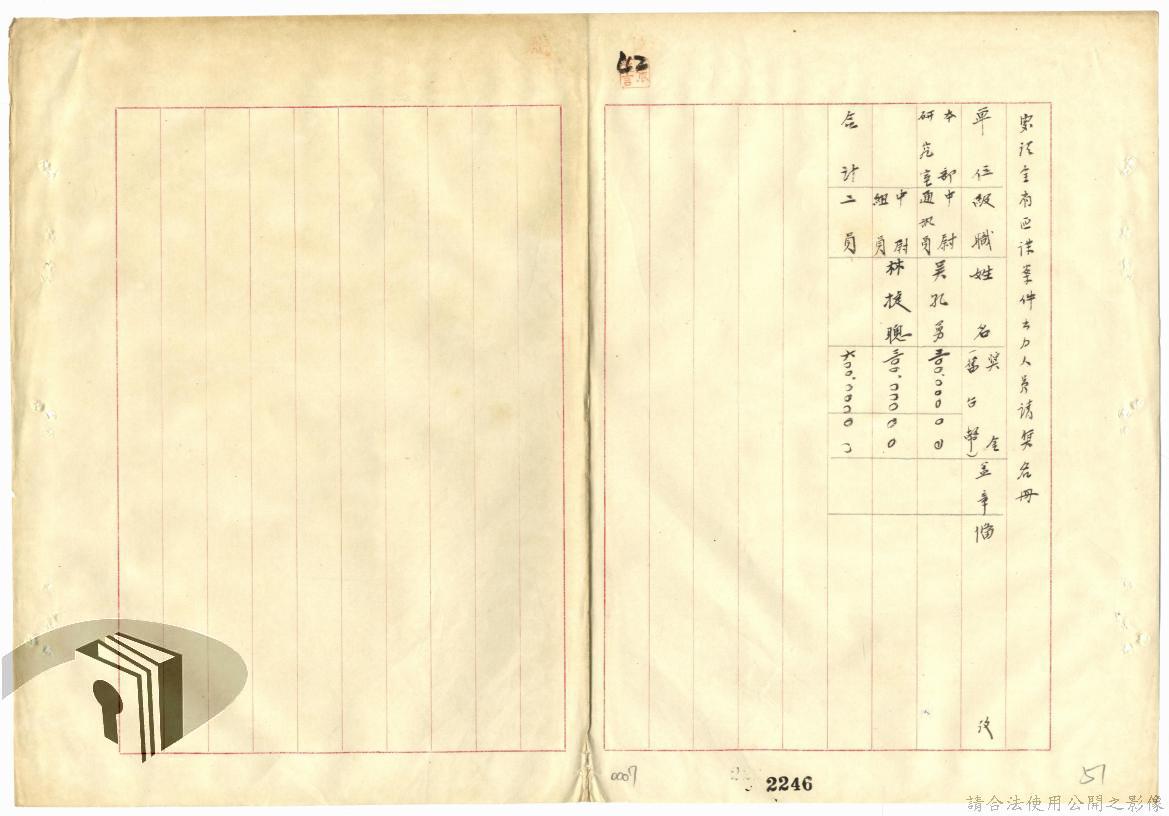 42
案談全有匹諜案件出力人員請獎名冊
單位 級職 姓名 獎金（舊台幣） 蓋章 備考
本部研究室 中尉通訊員 吳孔勇 三〇〇.〇〇〇〇〇
中尉組員 林捷聰 三〇〇.〇〇〇〇〇
合計 二員 六〇〇.〇〇〇〇〇
0007
2246
51
請合法使用公開之影像